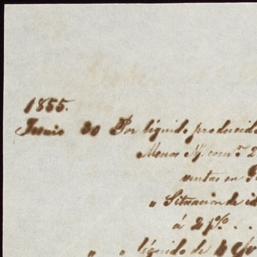 1855.
Junio 30 Por líquido producido
Menos
ventas en
" Situacion de
á 2 p%. . .
" " líquido de